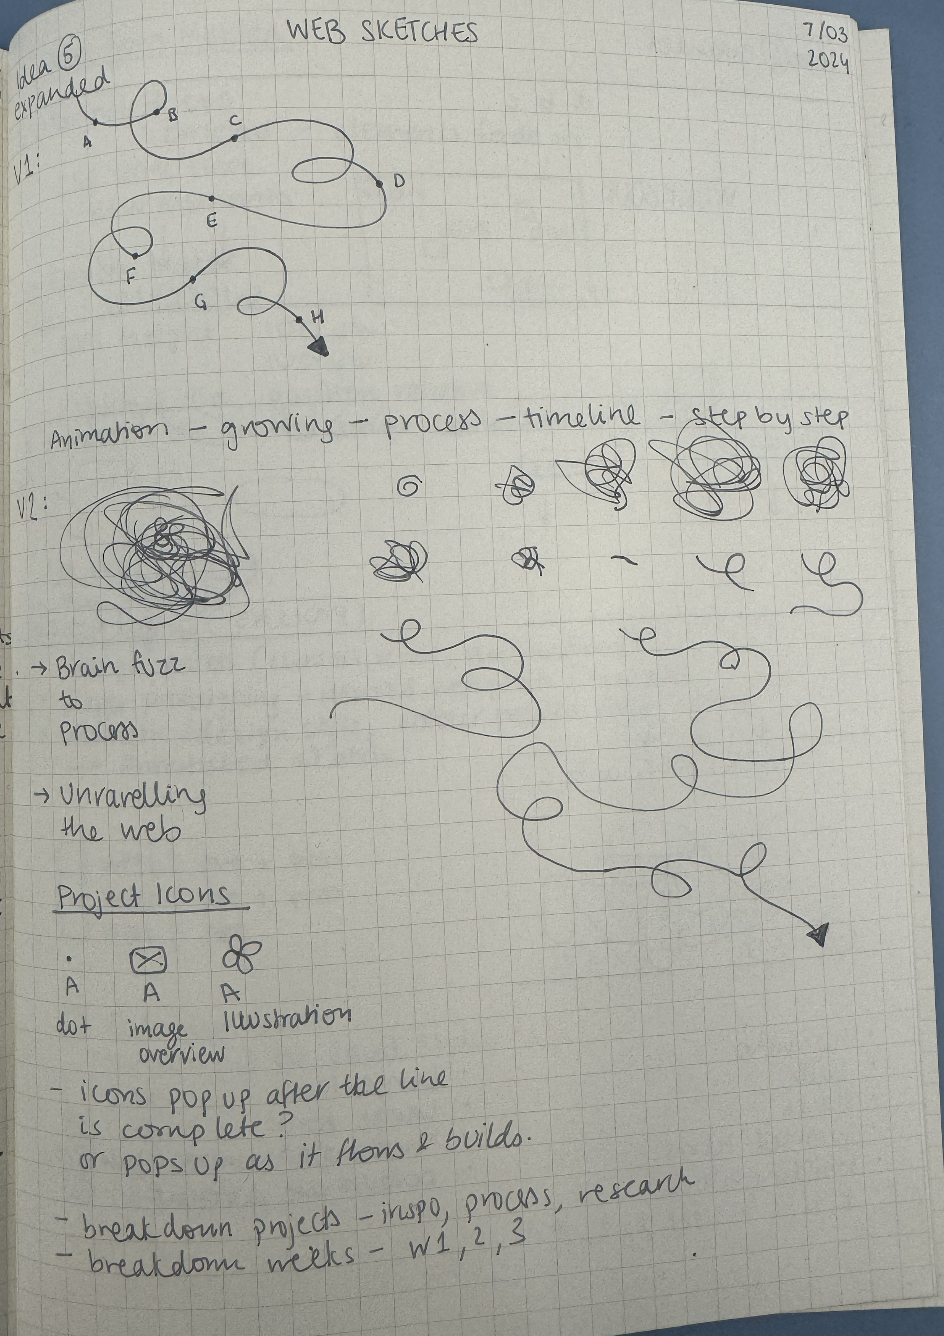 WEB SKETCHES
7/03
2024
Idea 5
expanded
V1:
A
B
C
D
E
F
G
H
Animation - growing - process - timeline - step by step
V2:
→ Brain fuzz
to
process
→ Unravelling
the web
Project Icons
A
A
A
dot
image
overview
Illustration
- icons pop up after the line
is complete?
or pops up as it flows & builds.
- breakdown projects - inspo, process, research
- breakdown weeks - W1, 2, 3